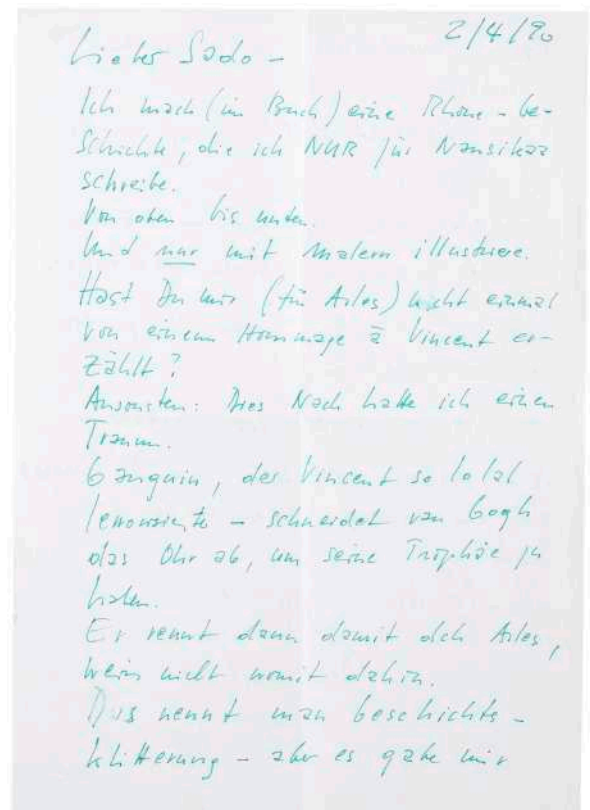 2/4/90
Lieber Sado –
Ich mach (im Buch) eine Rhone-Ge-
schichte, die ich NUR für Nausikaa
schreibe.
Von oben bis unten.
Und nur mit Malern illustriere.
Hast Du mir (für Arles) nicht einmal
von einem Hommage à Vincent er-
zählt?
Ansonsten: Dies Nach hatte ich einen
Traum.
Gauguin, der Vincent so total
– schneidet van Gogh
das Ohr ab, um seine Trophäe zu
haben.
Er rennt dann damit dch Arles,
weiss nicht womit dahin.
Das nennt man Geschichts-
klitterung – aber es gäbe mir